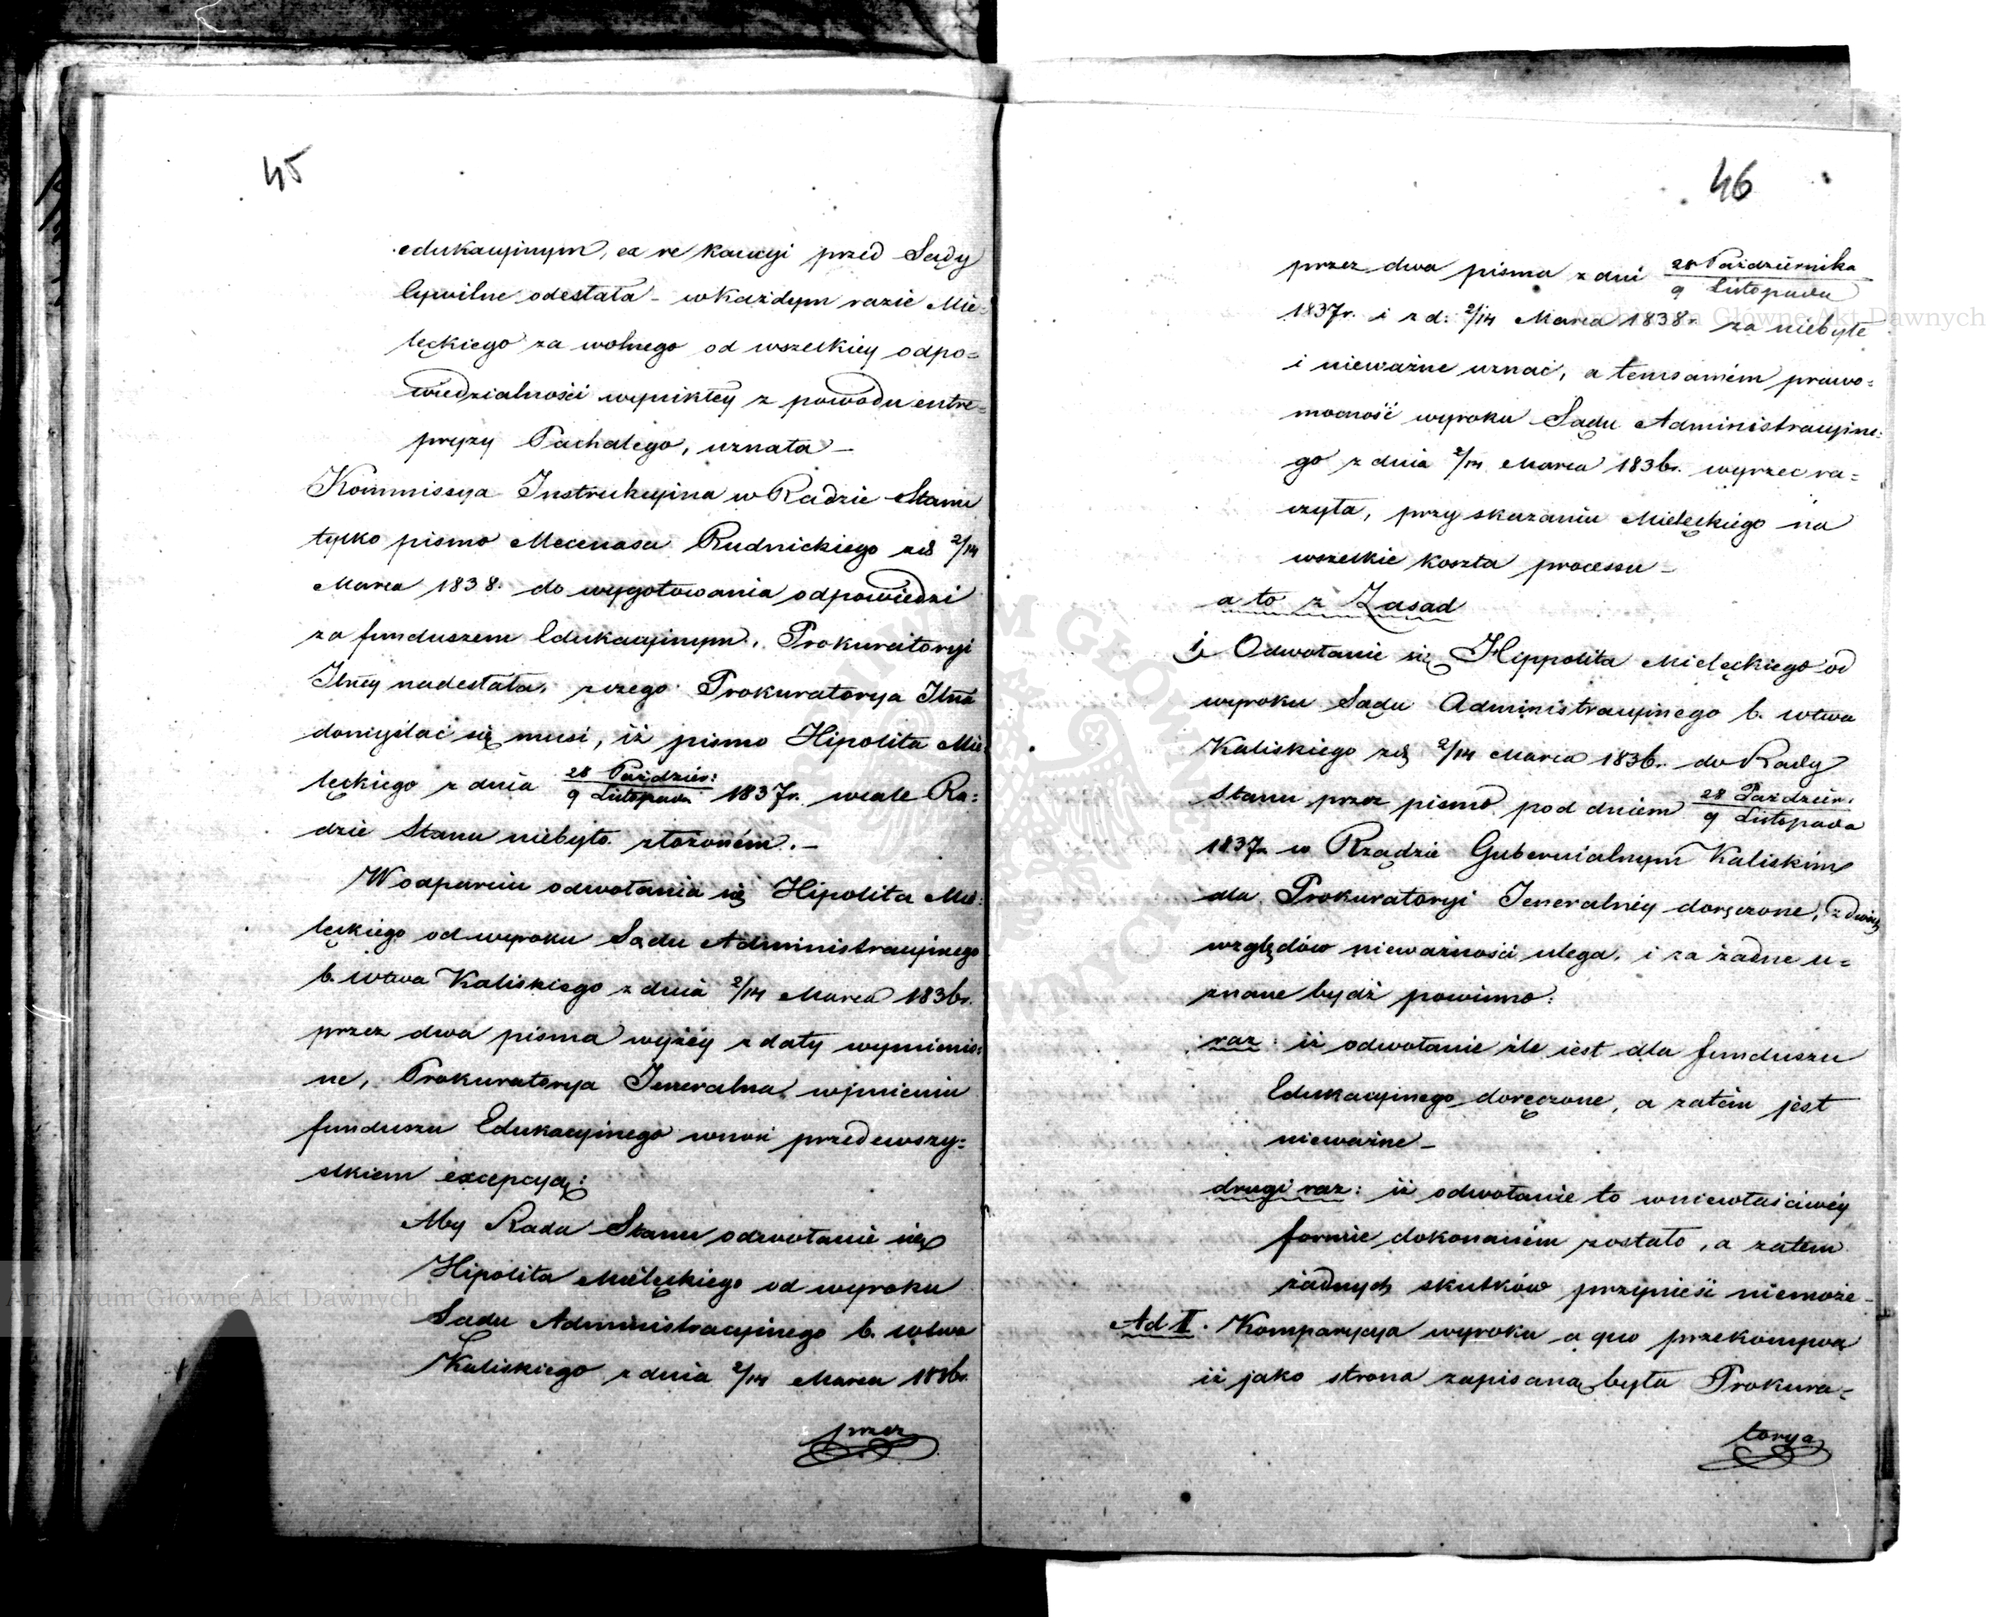 45
edukacyjnym, ex re kaucyi przed Sądy
Cywilne odesłała – w każdym razie Mie=
lęckiego za wolnego od wszelkiey odpo=
wiedzialności wynikłey z powodu entre=
pryzy Pachalego, uznała –
Kommissya Instrukcyina w Radzie Stanu
tylko pismo Mecenasa Rudnickiego zd 2/14
Marca 1838. do wygotowania odpowiedzi
za funduszem Edukacyinym, Prokuratoryi
Jlney nadesłała, z czego Prokuratorya Jlna
domyślać się musi, iż pismo Hipolita Mie=
lęckiego z dnia 28 Paździer: / 9 Listopada 1837r. wcale Ra=
dzie Stanu niebyło złożoném. –
W odparciu odwołania się Hipolita Mie=
lęckiego od wyroku Sądu Administracyinego
b. wtwa Kaliskiego z dnia 2/14 Marca 1836r.
przez dwa pisma wyżéy z daty wymienio=
ne, Prokuratorya Jeneralna w imieniu
funduszu Edukacyinego wnosi przedewszy=
stkiem excepcyą:
Aby Rada Stanu odwołanie się
Hipolita Mielęckiego od wyroku
Sądu Administracyinego b. wtwa
Kaliskiego z dnia 2/14 Marca 1836r.
przez
46
przez dwa pisma z dni 28 Października / 9 Listopada
1837r. i z d: 2/14 Marca 1838r. za niebyłe
i nieważne uznać, a temsamém prawo=
mocność wyroku Sądu Administracyine=
go z dnia 2/14 Marca 1836r. wyrzec ra=
czyła, przy skazaniu Mielęckiego na
wszelkie koszta processu –
a to z Zasad
1, Odwołanie się Hippolita Mielęckiego od
wyroku Sądu Administracyinego b. wtwa
Kaliskiego zd 2/14 Marca 1836r. do Rady
Stanu przez pismo pod dniem 28 Paździer: / 9 Listopada
1837r. w Rządzie Gubernialnym Kaliskim
dla Prokuratoryi Jeneralnéy doręczone, z dwóch
względów nieważności ulega, i za żadne u=
znane bydź powinno:
raz: iż odwołanie źle iest dla funduszu
Edukacyinego doręczone, a zatém jest
nieważne –
drugi raz: iż odwołanie to w niewłaściwéy
formie dokonaném zostało, a zatem
żadnych skutków przynieść niemoże –
Ad II. Komparycya wyroku a quo przekonywa
iż jako strona zapisaną była Prokura=
torya
Archiwum Główne Akt Dawnych
Archiwum Główne Akt Dawnych
ARCHIWUM GŁÓWNE AKT DAWNYCH